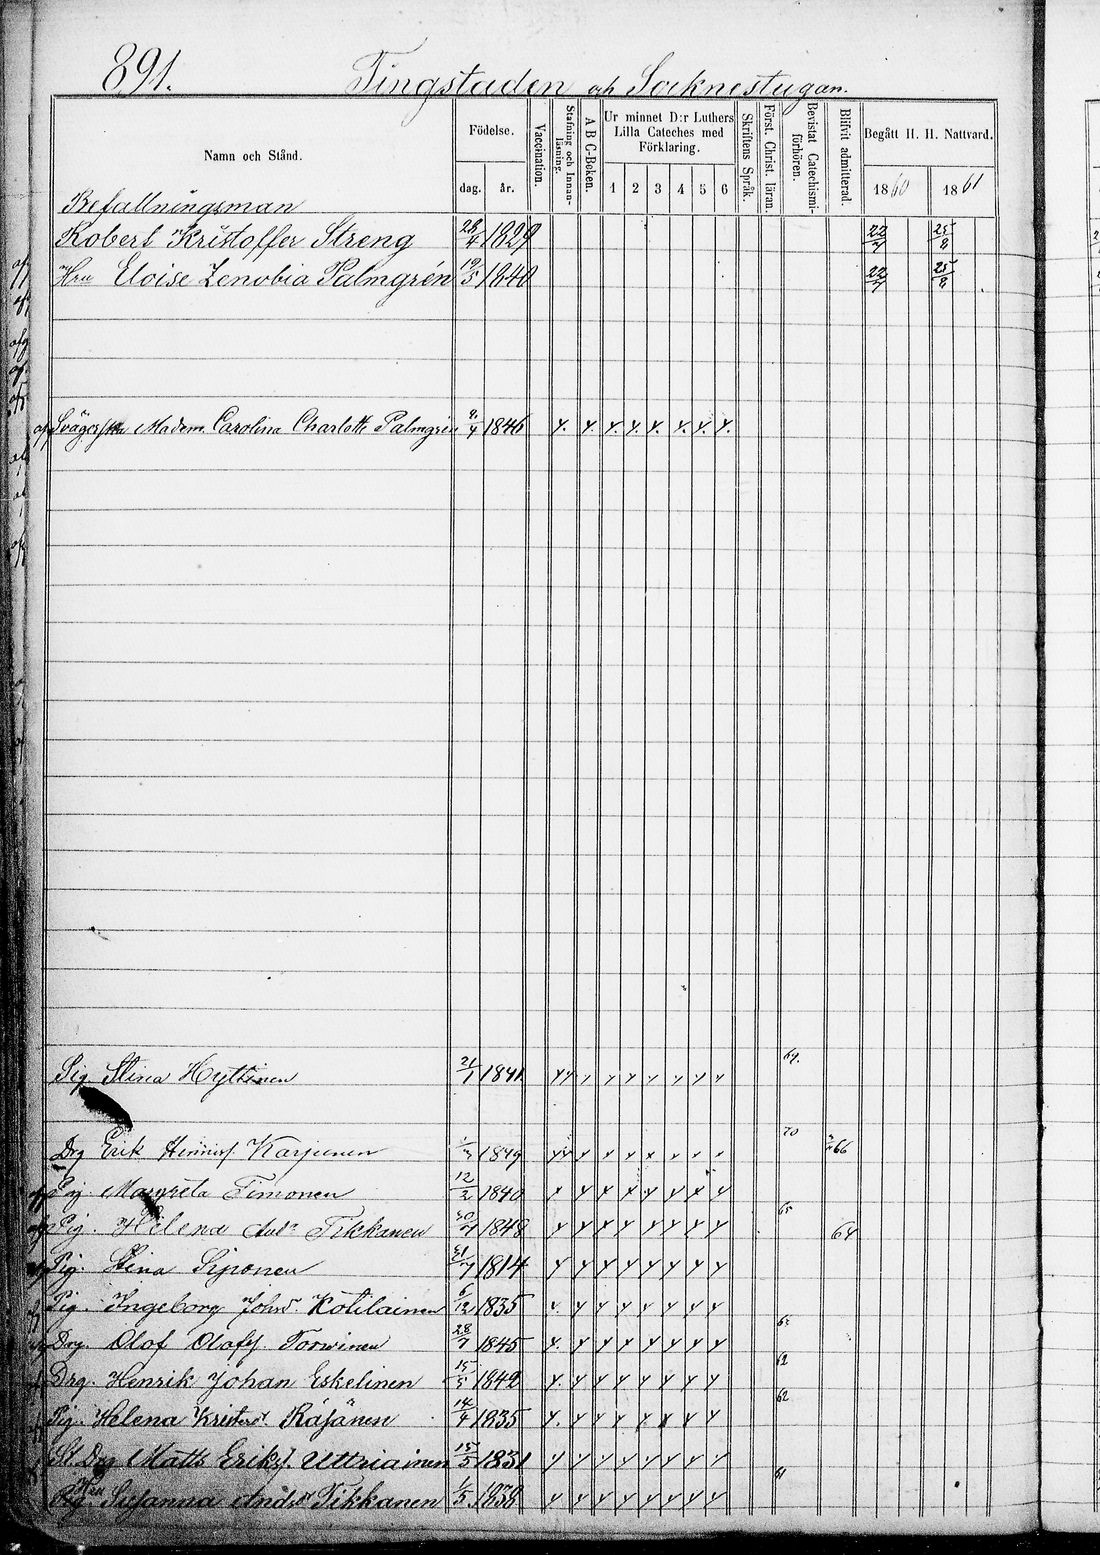 891. Tingstaden och Socknestugan.
Namn och Stånd. Födelse. dag. år. Vaccination. Stafning och Innanläsning. A B C-Boken. Ur minnet D:r Luthers Lilla Cateches med Förklaring. 1 2 3 4 5 6 Skriftens Språk. Först. Christ. läran. Bevistat Catechismiförhören. Blifvit admitterad. Begått H. H. Nattvard. 1860 1861
Befallningsman
Robert Kristoffer Streng 23/4 1829 22/7 25/8
Hru Eloise Zenobia Palmgrén 19/5 1840 22/7 25/8
Svägerska Madem. Carolina Charlotte Palmgrén 9/4 1846
Pig. Stina Hyttinen 21/1 1841 69.
Drg Erik Henriksf. Karjunen 1/3 1849 70 66
Pig Margreta Timonen 12/2 1840
Pig. Helena Andr Tikkanen 30/7 1848 65 64
Pig. Stina Siponen 31/7 1814
Pig. Ingeborg Johsd. Kotilainen 6/12 1835
Drg. Olof Olofsf. Torvinen 28/7 1845
Drg. Henrik Johan Eskelinen 15/5 1842 62
Pig. Helena Kristersd. Räjänen 14/4 1835 62
St. Drg Matts Eriksf. Uttriainen 15/5 1831
Hru
Pig. Susanna Andsdr Tikkanen 1/5 1838 61